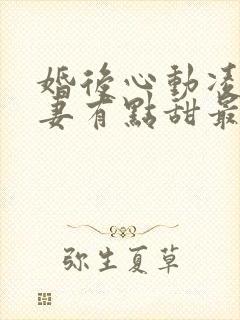 婚後心動凌
妻有點甜最
弥生夏草